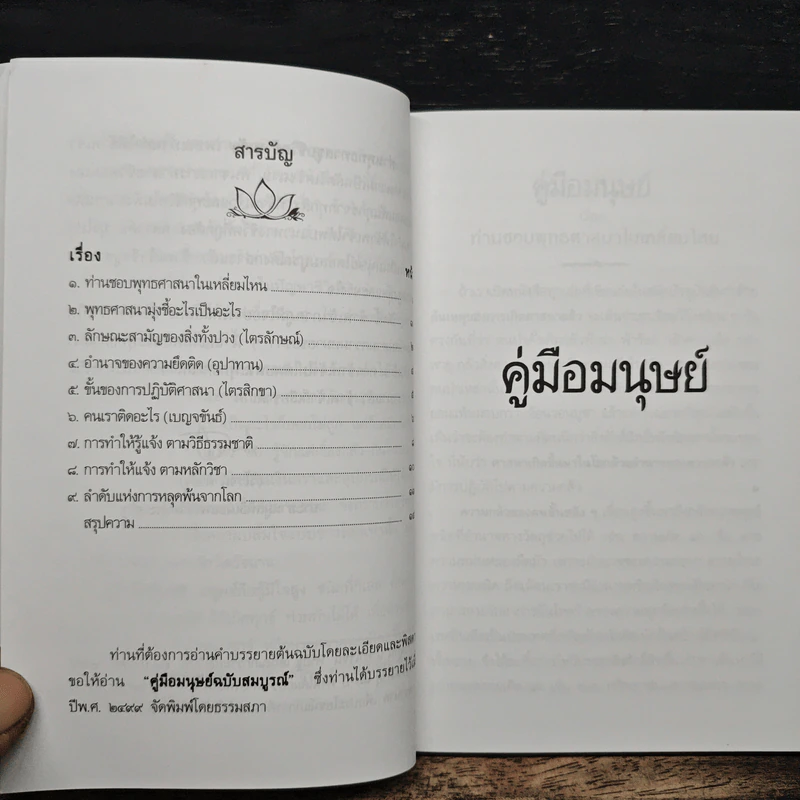 สารบัญ
เรื่อง
๑. ท่านชอบพุทธศาสนาในเหลี่ยมไหน
๒. พุทธศาสนามุ่งชี้อะไรเป็นอะไร
๓. ลักษณะสามัญของสิ่งทั้งปวง (ไตรลักษณ์)
๔. อำนาจของความยึดติด (อุปาทาน)
๕. ขั้นของการปฏิบัติศาสนา (ไตรสิกขา)
๖. คนเราติดอะไร (เบญจขันธ์)
๗. การทำให้รู้แจ้ง ตามวิธีธรรมชาติ
๘. การทำให้แจ้ง ตามหลักวิชา
๙. ลำดับแห่งการหลุดพ้นจากโลก
สรุปความ
ท่านที่ต้องการอ่านคำบรรยายต้นฉบับโดยละเอียดและ
ขอให้อ่าน “คู่มือมนุษย์ฉบับสมบูรณ์” ซึ่งท่านได้บรรยายไว้
ปีพ.ศ. ๒๔๙๙ จัดพิมพ์โดยธรรมสภา
คู่มือมนุษย์